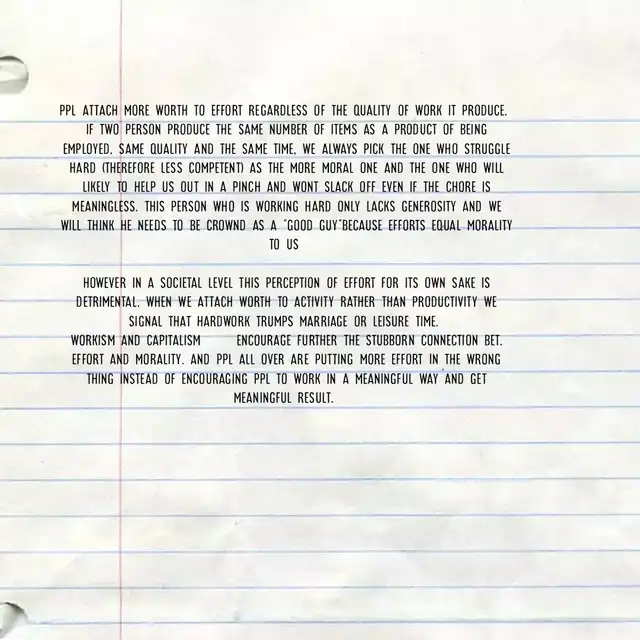 PPL ATTACH MORE WORTH TO EFFORT REGARDLESS OF THE QUALITY OF WORK IT PRODUCE.
IF TWO PERSON PRODUCE THE SAME NUMBER OF ITEMS AS A PRODUCT OF BEING
EMPLOYED, SAME QUALITY AND THE SAME TIME, WE ALWAYS PICK THE ONE WHO STRUGGLE
HARD (THEREFORE LESS COMPETENT) AS THE MORE MORAL ONE AND THE ONE WHO WILL
LIKELY TO HELP US OUT IN A PINCH AND WONT SLACK OFF EVEN IF THE CHORE IS
MEANINGLESS. THIS PERSON WHO IS WORKING HARD ONLY LACKS GENEROSITY AND WE
WILL THINK HE NEEDS TO BE CROWND AS A "GOOD GUY"BECAUSE EFFORTS EQUAL MORALITY
TO US
HOWEVER IN A SOCIETAL LEVEL THIS PERCEPTION OF EFFORT FOR ITS OWN SAKE IS
DETRIMENTAL. WHEN WE ATTACH WORTH TO ACTIVITY RATHER THAN PRODUCTIVITY WE
SIGNAL THAT HARDWORK TRUMPS MARRIAGE OR LEISURE TIME.
WORKISM AND CAPITALISM ENCOURAGE FURTHER THE STUBBORN CONNECTION BET.
EFFORT AND MORALITY. AND PPL ALL OVER ARE PUTTING MORE EFFORT IN THE WRONG
THING INSTEAD OF ENCOURAGING PPL TO WORK IN A MEANINGFUL WAY AND GET
MEANINGFUL RESULT.